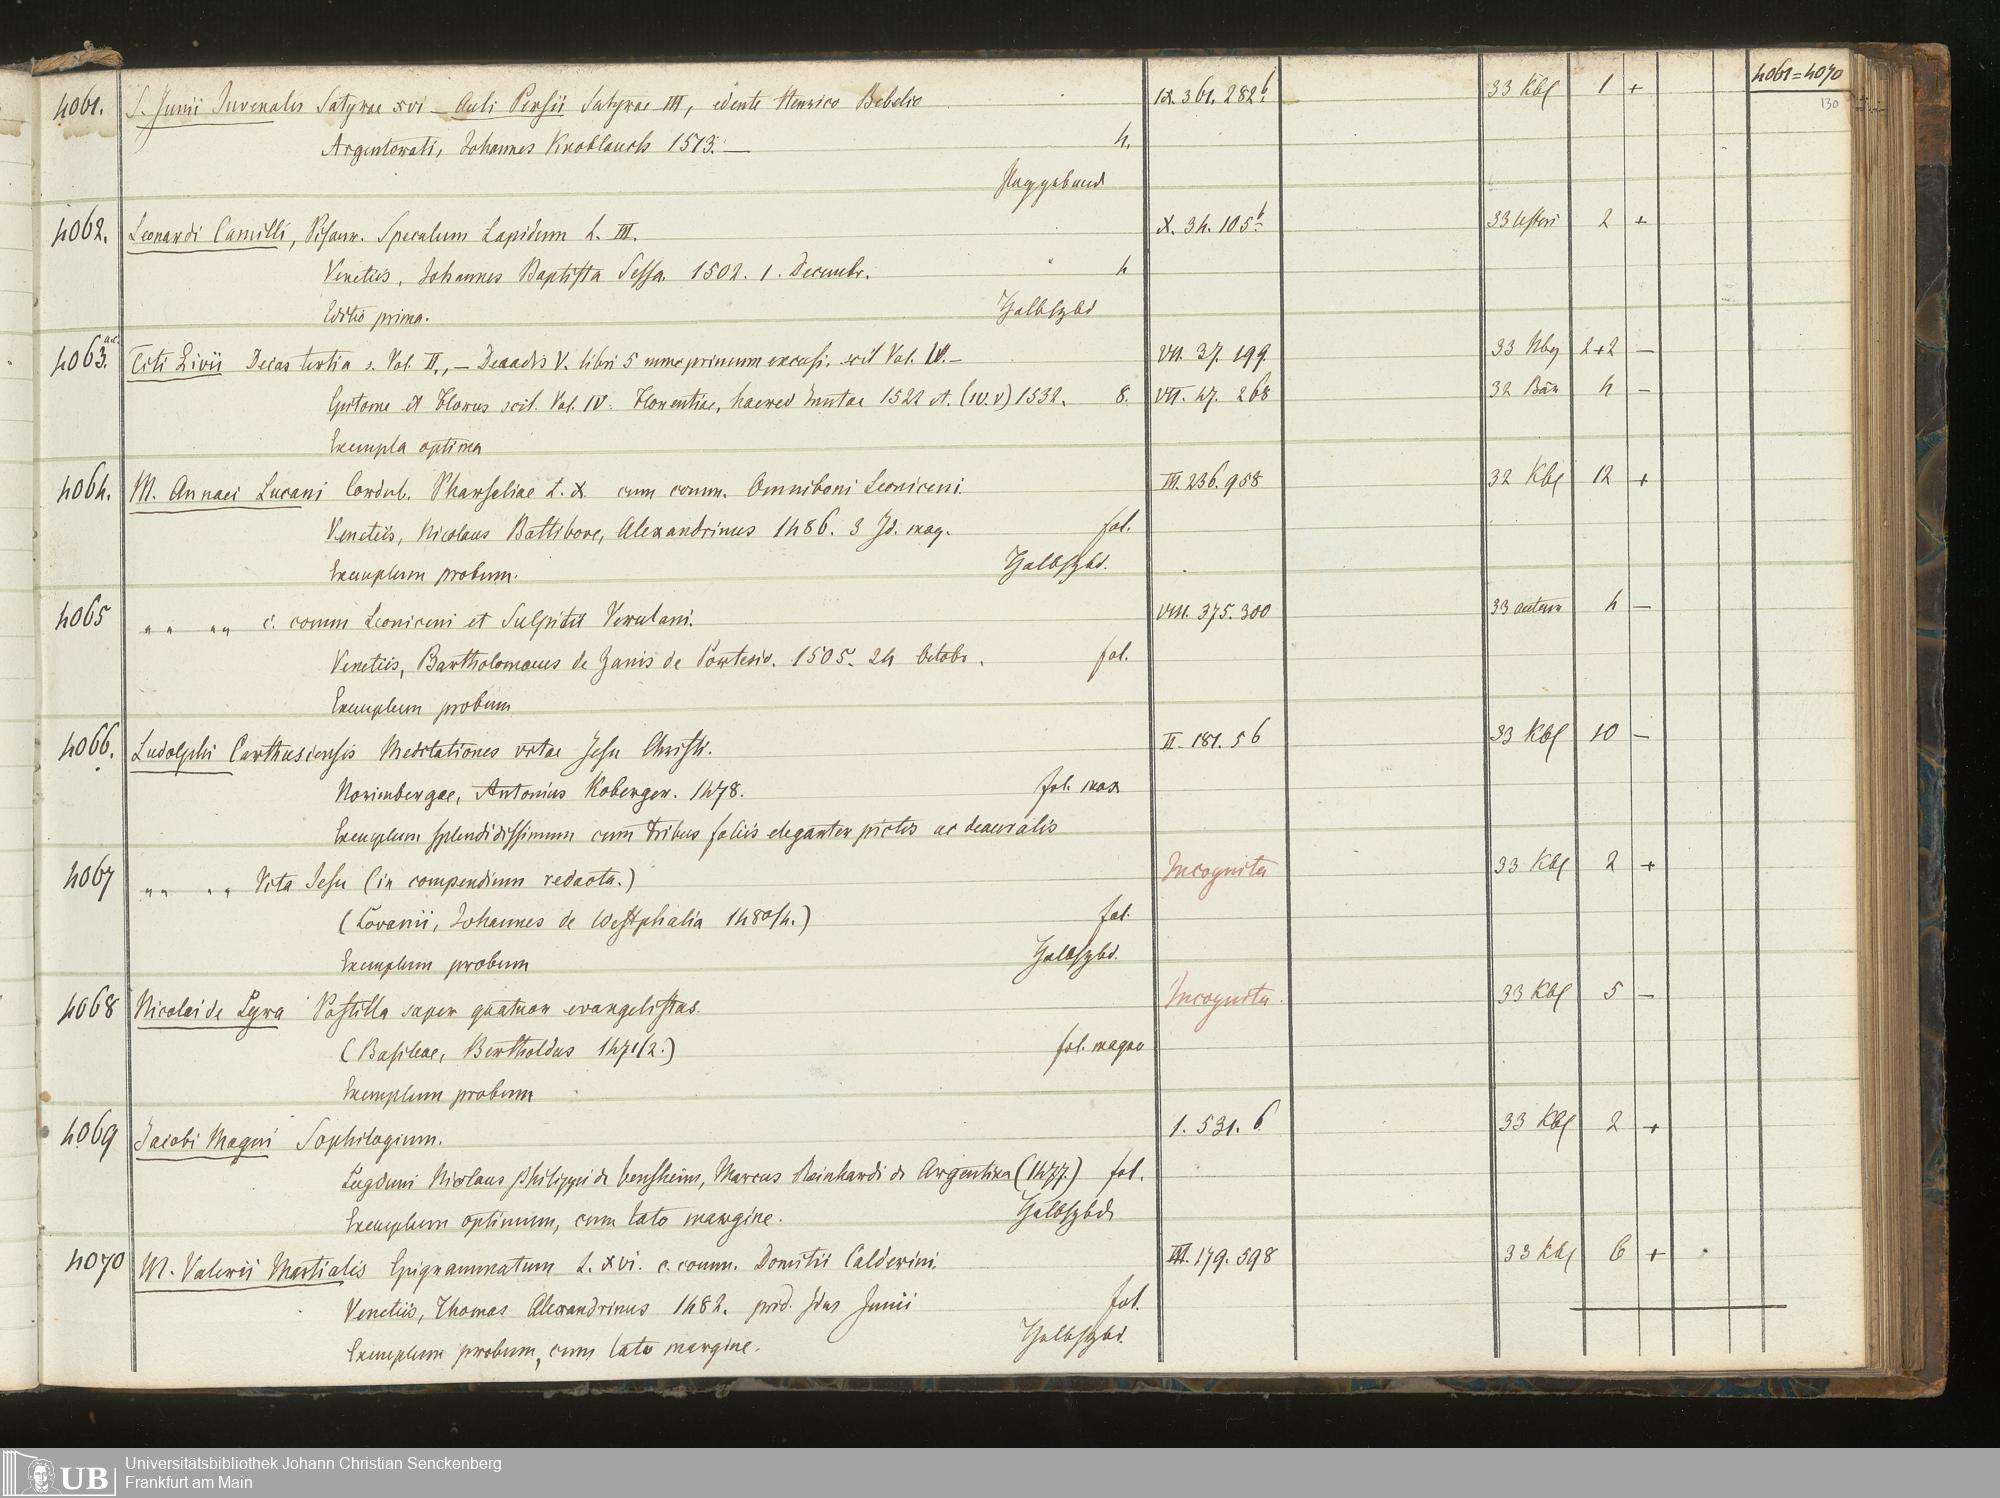 4061=4070
130
4061. S. Junii Juvenalis Satyrae xvi – Auli Persii Satyrae III, edente Henrico Bebelio IX. 361. 282b. 33 Kbl 1 +
Argentorati, Johannes Knoblauch 1513. — 4.
4062. Leonardi Camilli, Pisaur. Speculum Lapidum L. III. X. 34. 105b 33 2 +
Venetiis, Johannes Baptista Sessa. 1502. 1. Decembr. 4
Editio prima. Halbfzbd
4063. Titi Livii Decas tertia s. Vol. II., – Decadis V. libri 5 nunc primum excusi. scil Vol. IV. – VII. 37. 199. 33 2+2 –
Epitome et Florus scil. Vol. IV. Florentiae, haered Juntae 1522 et. (IV. V) 1532. 8. VII. 47. 268 32 4 –
Exempla optima
4064. M. Annaei Lucani Cordub. Pharsaliae L. X. cum comm. Omniboni Leoniceni. III. 236. 958 32 Kbl 12 +
Venetiis, Nicolaus Battibove, Alexandrinus 1486. 3 Id. mag. fol.
Exemplum probum. Halbfzbd.
4065 „ „ „ „ c. comm Leoniceni et Sulpitii Verulani. VIII. 375. 300 33 4 –
Venetiis, Bartholomaeus de Zanis de Portesio. 1505. 24 Octobr. fol.
Exemplum probum
4066. Ludolphi Carthusiensis Meditationes vitae Jesu Christi. II. 181. 56 33 Kbl 10 –
Norimbergae, Antonius Koberger. 1478. fol. max
Exemplum splendidissimum cum tribus foliis eleganter pictis ac deauratis
4067 „ „ „ „ Vita Jesu (in compendium redacta.) Incognita 33 Kbl 2 +
(Lovanii, Johannes de Westphalia 1480/4.) fol.
Exemplum probum Halbfzbd.
4068 Nicolai de Lyra Postilla super quatuor evangelistas. Incognita. 33 Kbl 5 –
(Basileae, Bertholdus 1471/2.) fol. magno
Exemplum probum
4069 Jacobi Magni Sophilogium. I. 531. 6. 33 Kbl 2 +
Lugduni Nicolaus Philippi de bensheim, Marcus Reinhardi de Argentina (1477.) fol.
Exemplum optimum, cum lato margine. Halbfzbd
4070 M. Valerii Martialis Epigrammatum L. XVI. c. comm. Domitii Calderini. III. 179. 598 33 Kbl 6 +
Venetiis, Thomas Alexandrinus 1482. prid. Idus Junii fol.
Exemplum probum, cum lato margine. Halbfzbd.
UB Universitätsbibliothek Johann Christian Senckenberg
Frankfurt am Main